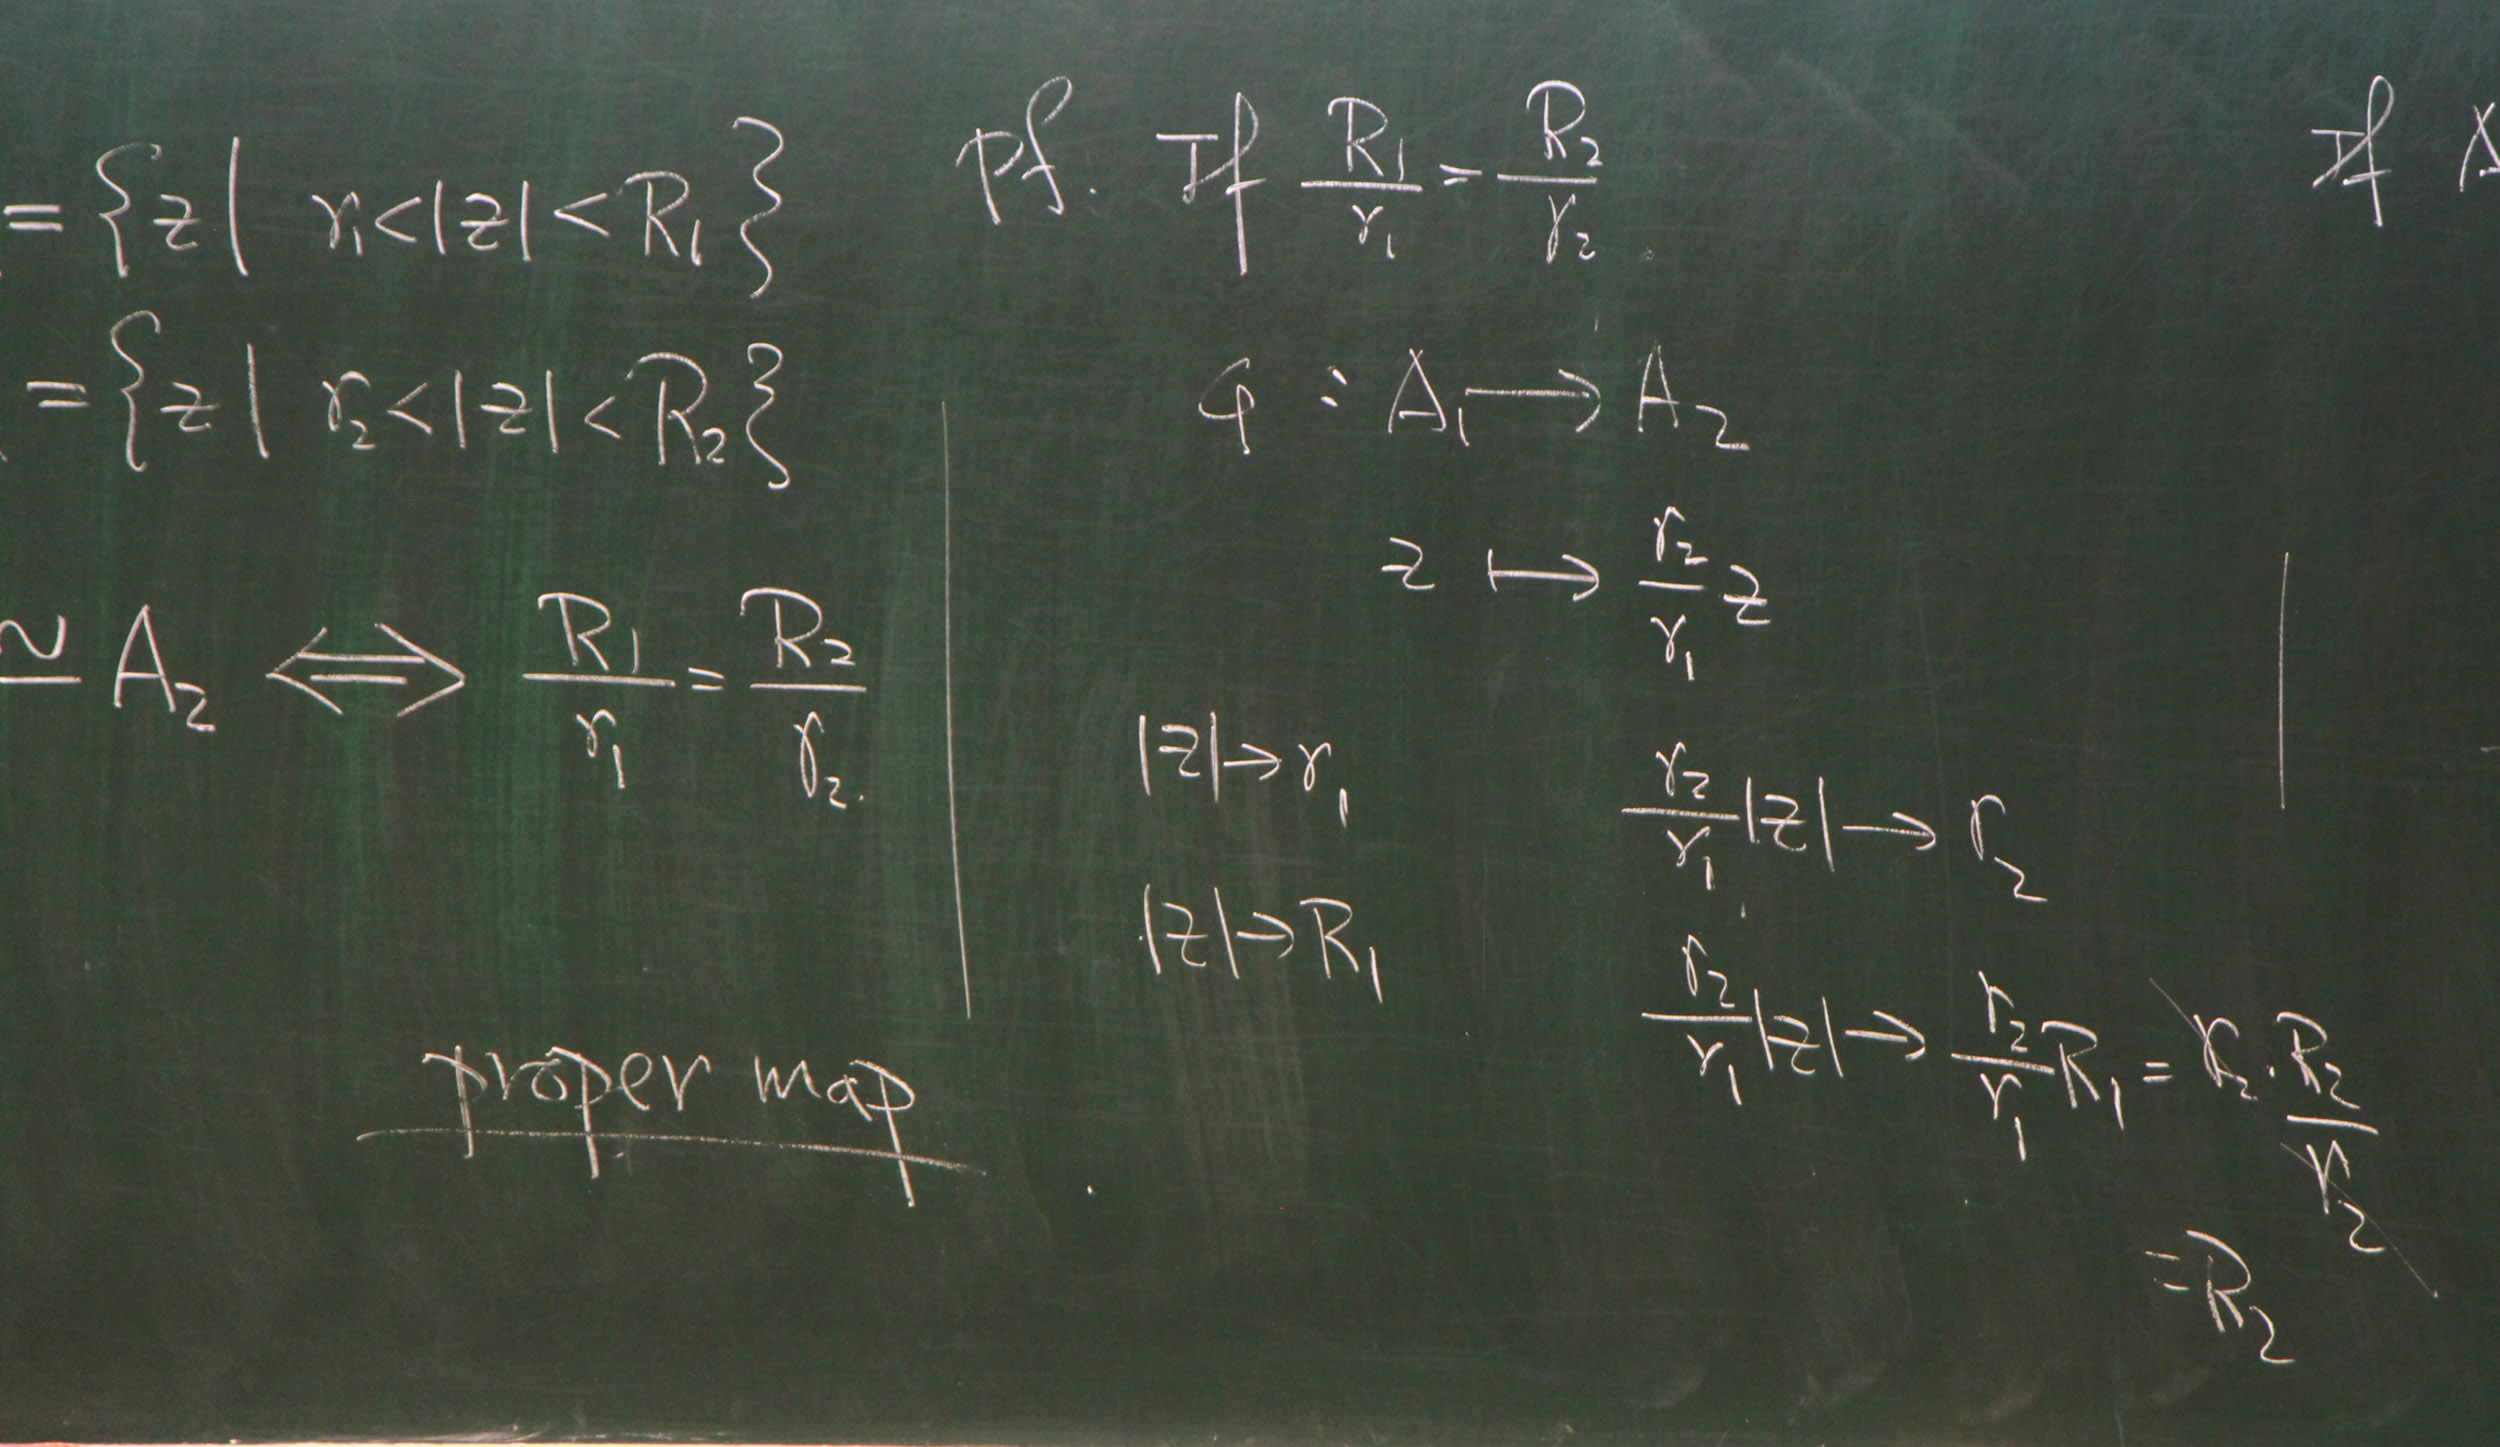 = {z | r₁ < |z| < R₁}
= {z | r₂ < |z| < R₂}
≃ A₂ ⟺ R₁/r₁ = R₂/r₂.
proper map
Pf. If R₁/r₁ = R₂/r₂.
φ : A₁ ⟶ A₂
z ⟼ r₂/r₁ z
|z| → r₁   r₂/r₁ |z| → r₂
|z| → R₁   r₂/r₁ |z| → r₂/r₁ R₁ = r₂ · R₂/r₂
= R₂
If A